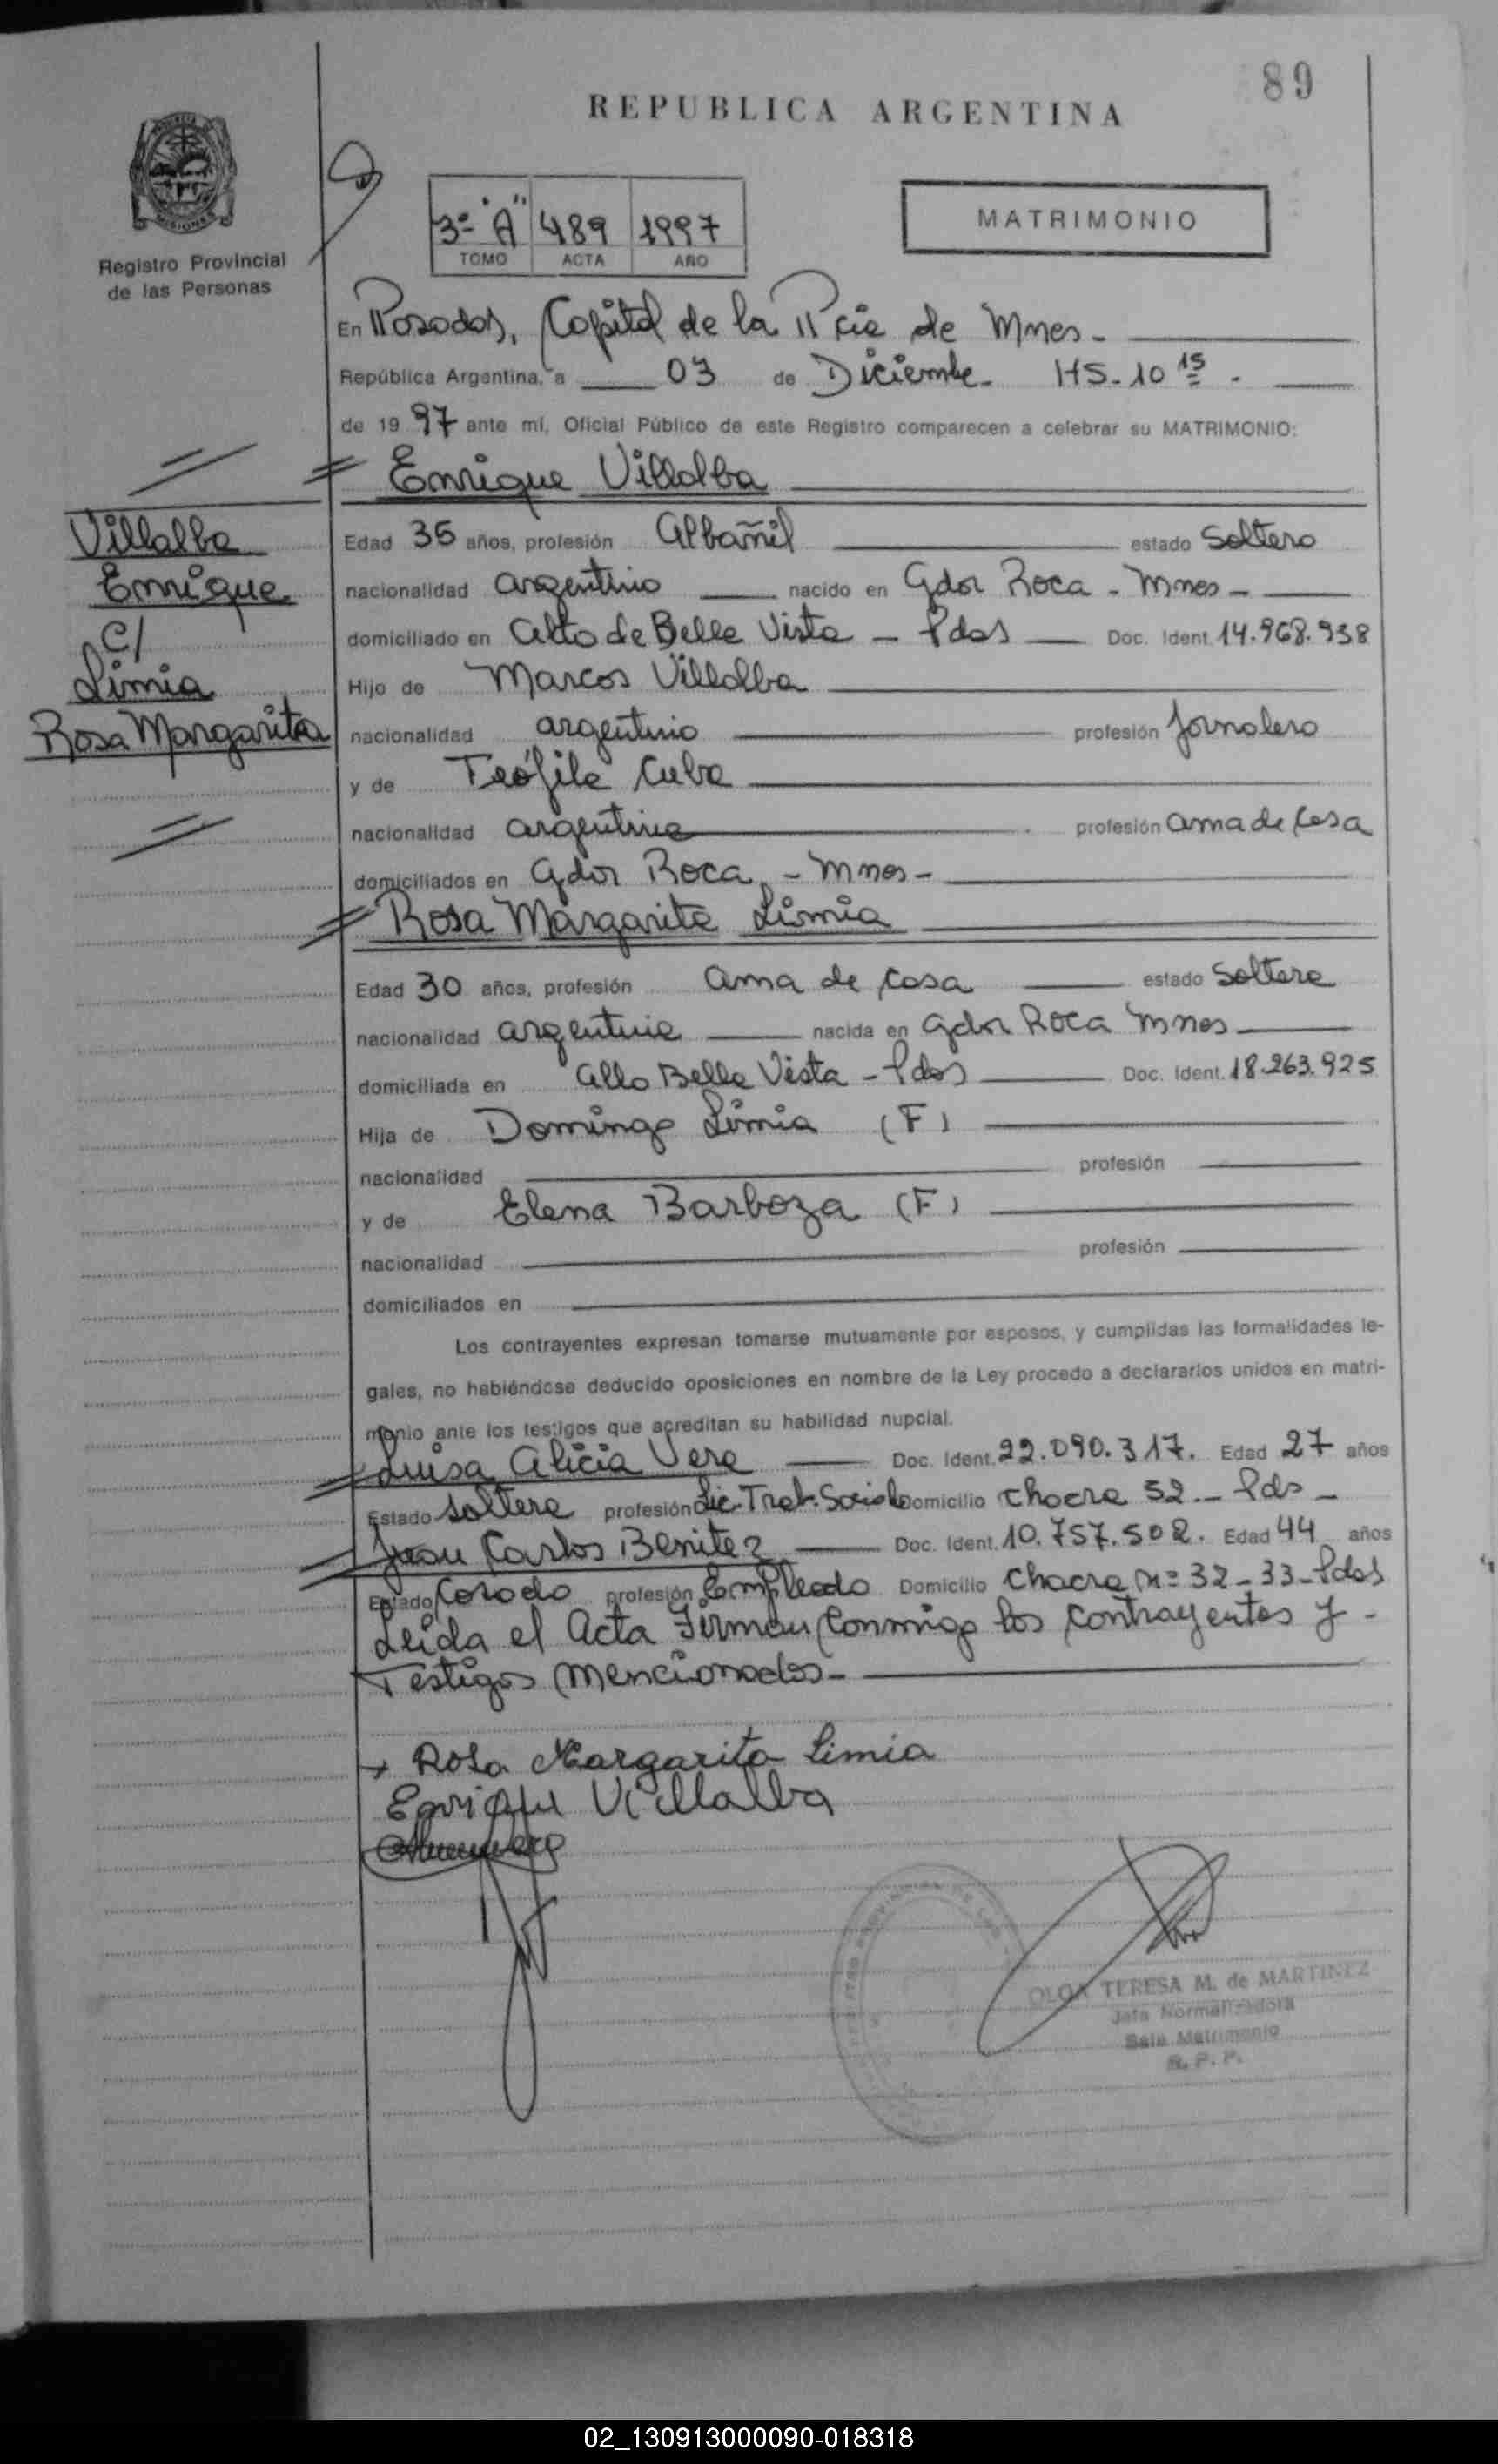 89
REPUBLICA ARGENTINA
Registro Provincial
de las Personas
3º "A" 489 1997
TOMO ACTA AÑO
MATRIMONIO
En Posadas, Capital de la Pcia de Mnes-
República Argentina, a 03 de Diciembre. HS-10 15-
de 1997 ante mí, Oficial Público de este Registro comparecen a celebrar su MATRIMONIO:
Enrique Villalba
Villalba
Enrique
C/
Limia
Rosa Margarita
Edad 35 años, profesión Albañil estado Soltero
nacionalidad argentino nacido en Gdor Roca - Mnes-
domiciliado en Alto de Bella Vista - Pdas Doc. Ident. 14.968.938
Hijo de Marcos Villalba
nacionalidad argentino profesión Jornalero
y de Teófila Cuba
nacionalidad argentina profesión ama de casa
domiciliados en Gdor Roca - Mnes-
Rosa Margarita Limia
Edad 30 años, profesión Ama de casa estado Soltera
nacionalidad argentina nacida en Gdor Roca Mnes
domiciliada en Alto Bella Vista - Pdas Doc. Ident. 18.263.925
Hija de Domingo Limia (F)
nacionalidad profesión
y de Elena Barboza (F)
nacionalidad profesión
domiciliados en
Los contrayentes expresan tomarse mutuamente por esposos, y cumplidas las formalidades le-
gales, no habiéndose deducido oposiciones en nombre de la Ley procedo a declararlos unidos en matri-
monio ante los testigos que acreditan su habilidad nupcial.
Luisa Alicia Vera Doc. Ident. 22.090.317. Edad 27 años
Estado Soltera profesión Lic. Trab. Social Domicilio Chacra 52 - Pds -
Juan Carlos Benitez Doc. Ident. 10.757.502. Edad 44 años
Estado Casado profesión Empleado Domicilio Chacra Nº 32-33-Pdas
Leída el Acta Firman Conmigo los contrayentes y -
Testigos mencionados-
+ Rosa Margarita Limia
Enrique Villalba
OLGA TERESA M. de MARTINEZ
Jefa Normalizadora
Sala Matrimonio
R. P. P.
02_130913000090-018318